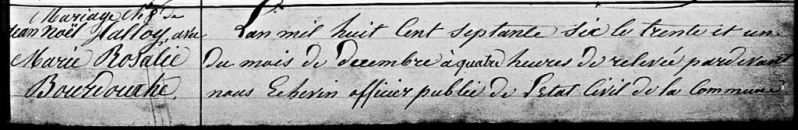 Mariage N° 8 de
Jean Noël Halloy, avec
Marie Rosalie
Bourdouxhe.
L'an mil huit cent septante six le trente et un
du mois de decembre à quatre heures de relevée pardevant
nous Echevin officier public de l'etat Civil de la Commune